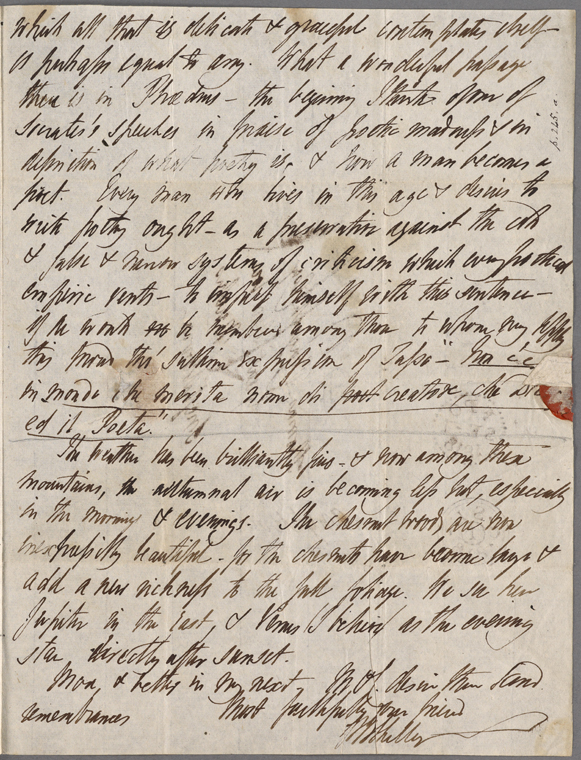 which all that is delicate & graceful contemplates itself
is perhaps equal to any. What a wonderful passage
there is in Phædrus — the beginning I think of one of
Socrates's speeches in praise of poetic madness & in
definition of what poetry is, & how a man becomes a
poet. Every man who lives in this age & desires to
write poetry ought — as a preservative against the
& false & narrow systems of criticism which every poetical
empiric vents — to impress himself with this sentence —
if he would be numbered among those to whom may apply
this proud tho' sublime expression of Tasso — "Non c'é
in mondo chi merita nome di creatore, che
ed il Poeta."
The weather has been brilliantly fine — & now among these
mountains, the autumnal air is becoming less hot, especially
in the mornings & evenings. The chesnut woods are now
inexpressibly beautiful — for the chesnuts have become large &
add a new richness to the full foliage. We see here
Jupiter in the east, & Venus I believe as the evening
star directly after sunset.
More, & better in my next. desire their kind
remembrances Most faithfully your friend
PBShelley
p. 225. a.